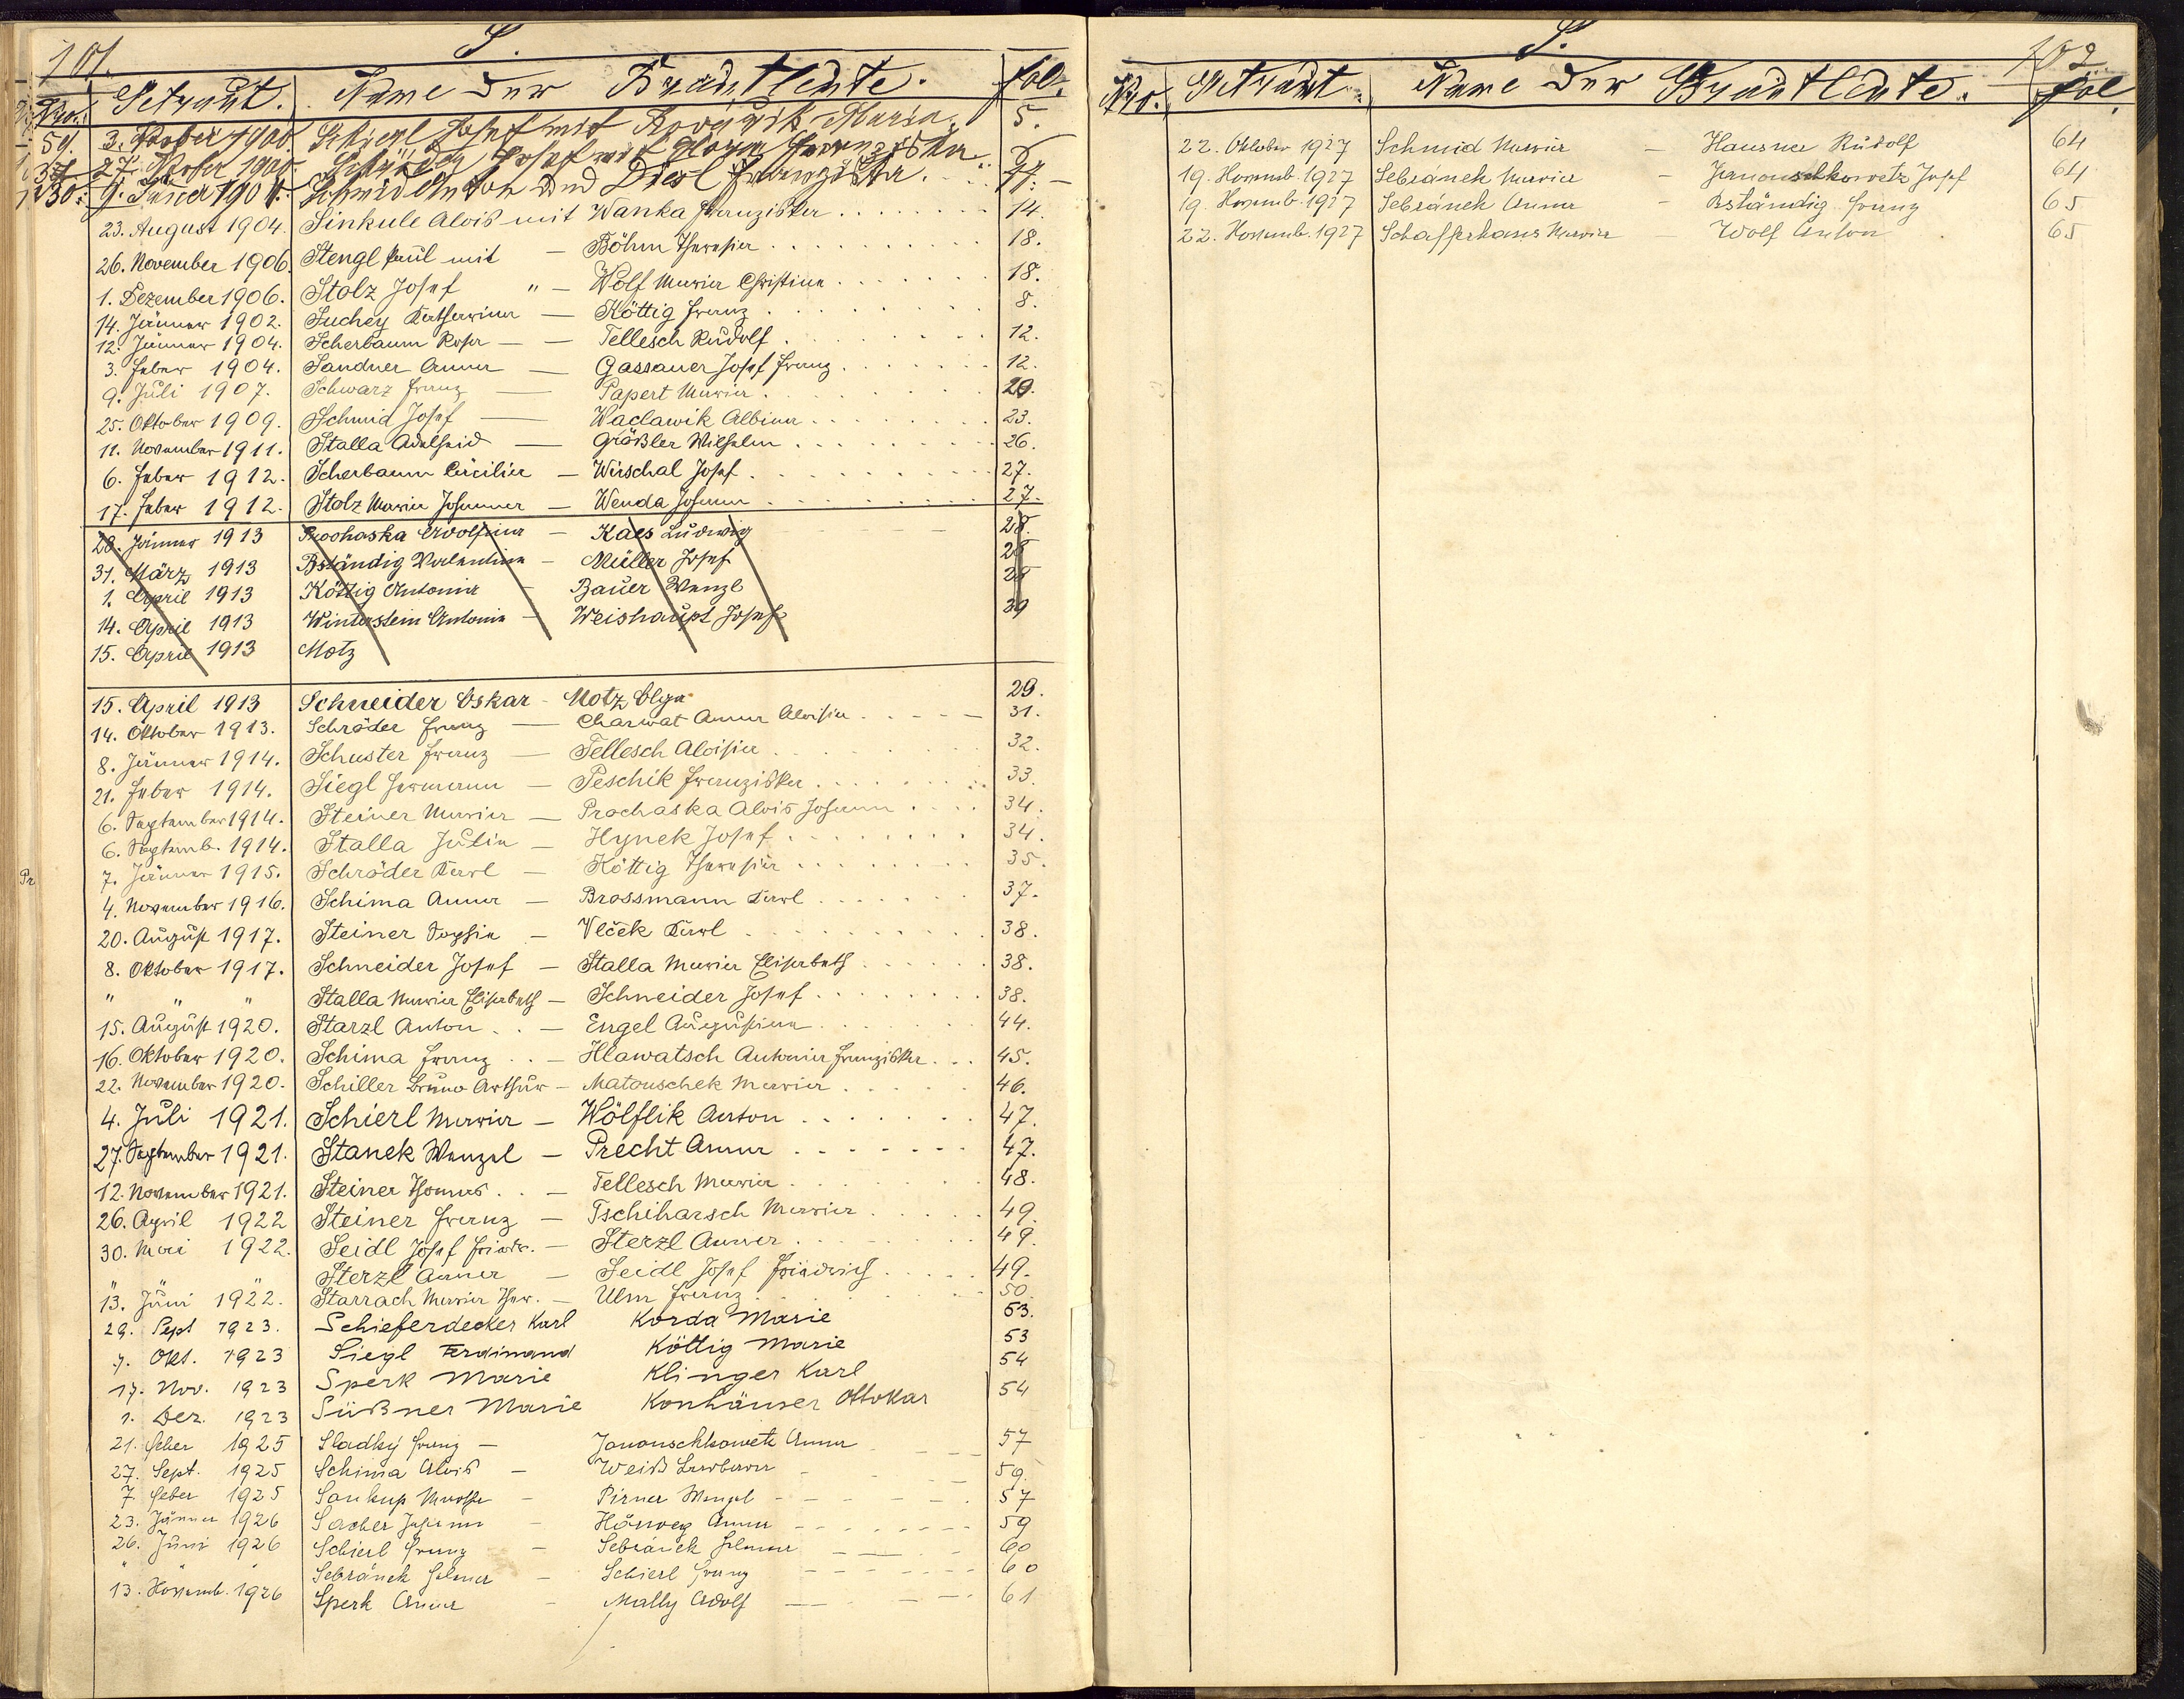 101.
S.
Nro. Getraut. Name der Brautleute. fol.
59. 3. 1900. Schiegl Josef mit Maria. 5.
37 27. 1900. Josef mit Franziska
30. 9. 1901. Schmid Anton und Diesl Franziska.
23. August 1904. Sinkule Alois mit Wanka Franziska 14.
26. November 1906. Stengl Paul mit — Böhm Theresia 18.
1. Dezember 1906. Stolz Josef " — Wolf Maria Christina 18.
14. Jänner 1902. Suchey Katharina — Köttig Franz 8.
12. Jänner 1904. Scherbaum Rosa — Tellesch Rudolf 12.
3. Feber 1904. Sandner Anna — Gassauer Josef Franz 12.
9. Juli 1907. Schwarz Franz — Papert Maria 20.
25. Oktober 1909. Schmid Josef — Waclawik Albina 23.
11. November 1911. Stalla Adelheid — Größler Wilhelm 26.
6. Feber 1912. Scherbaum Cäcilia — Wirschal Josef 27.
17. Feber 1912. Stolz Maria Johanna — Wenda Johann 27.
28. Jänner 1913 Prochaska Adolfina — Kaes Ludwig 28.
31. März 1913 Bständig Valentina — Müller Josef 28
1. April 1913 Köttig Antonia — Bauer Wenzl 28
14. April 1913 Winterstein Antonia — Weishaupt Josef 29
15. April 1913 Motz
15. April 1913 Schneider Oskar - Motz Olga 29.
14. Oktober 1913. Schröder Franz — Charwat Anna Aloisia 31.
8. Jänner 1914. Schuster Franz — Tellesch Aloisia 32.
21. Feber 1914. Siegl Hermann — Peschik Franziska 33.
6. September 1914. Steiner Maria — Prochaska Alois Johann 34.
6. Septemb. 1914. Stalla Julia — Hynek Josef 34.
7. Jänner 1915. Schröder Karl — Köttig Theresia 35.
4. November 1916. Schima Anna — Brossmann Karl 37.
20. August 1917. Steiner Sophie — Vlček Karl 38.
8. Oktober 1917. Schneider Josef — Stalla Maria Elisabeth 38.
" " " Stalla Maria Elisabeth — Schneider Josef 38.
15. August 1920. Starzl Anton — Engel Augustina 44.
16. Oktober 1920. Schima Franz — Hlawatsch Antonia Franziska 45.
22. November 1920. Schiller Bruno Arthur — Matouschek Maria 46.
4. Juli 1921. Schierl Maria — Wölflik Anton 47.
27. September 1921. Stanek Wenzel — Precht Anna 47.
12. November 1921. Steiner Thomas — Tellesch Maria 48.
26. April 1922 Steiner Franz — Tschiharsch Maria 49.
30. Mai 1922. Seidl Josef Friedr. — Sterzl Anna 49.
" " " Sterzl Anna — Seidl Josef Friedrich 49.
13. Juni 1922. Starrach Maria Ther. — Ulm Franz 50.
29. Sept 1923. Schieferdecker Karl Korda Marie 53.
7. Okt. 1923 Siegl Ferdinand Köttig Marie 53
17. Nov. 1923 Sperk Marie Klinger Karl 54
1. Dez. 1923 Süßner Marie Konhäuser Ottokar 54
21. Feber 1925 Sladký Franz — Janouschkowetz Anna 57
27. Sept. 1925 Schima Alois — Weiß Barbara 59.
7. Feber 1925 Soukup Martha — Pirner Wenzel 57
23. Jänner 1926 Sacher Johann — Anna 59
26. Juni 1926 Schierl Franz — Sebránek Helena 60
" " " Sebránek Helena — Schierl Franz 60
13. Novemb. 1926 Sperk Anna — Mally Adolf 61
102
S.
Nro. Getraut. Name der Brautleute. fol.
22. Oktober 1927 Schmid Maria — Hausner Rudolf 64
19. Novemb. 1927 Sebránek Maria — Janouschkowetz Josef 64
19. Novemb. 1927 Sebránek Anna — Bständig Franz 65
22. Novemb. 1927 Schafferhans Maria — Wolf Anton 65